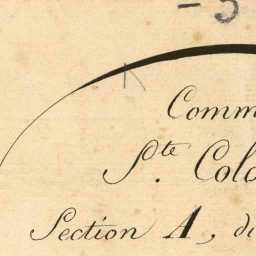 -5
Comm
Ste. Colo
Section A, d